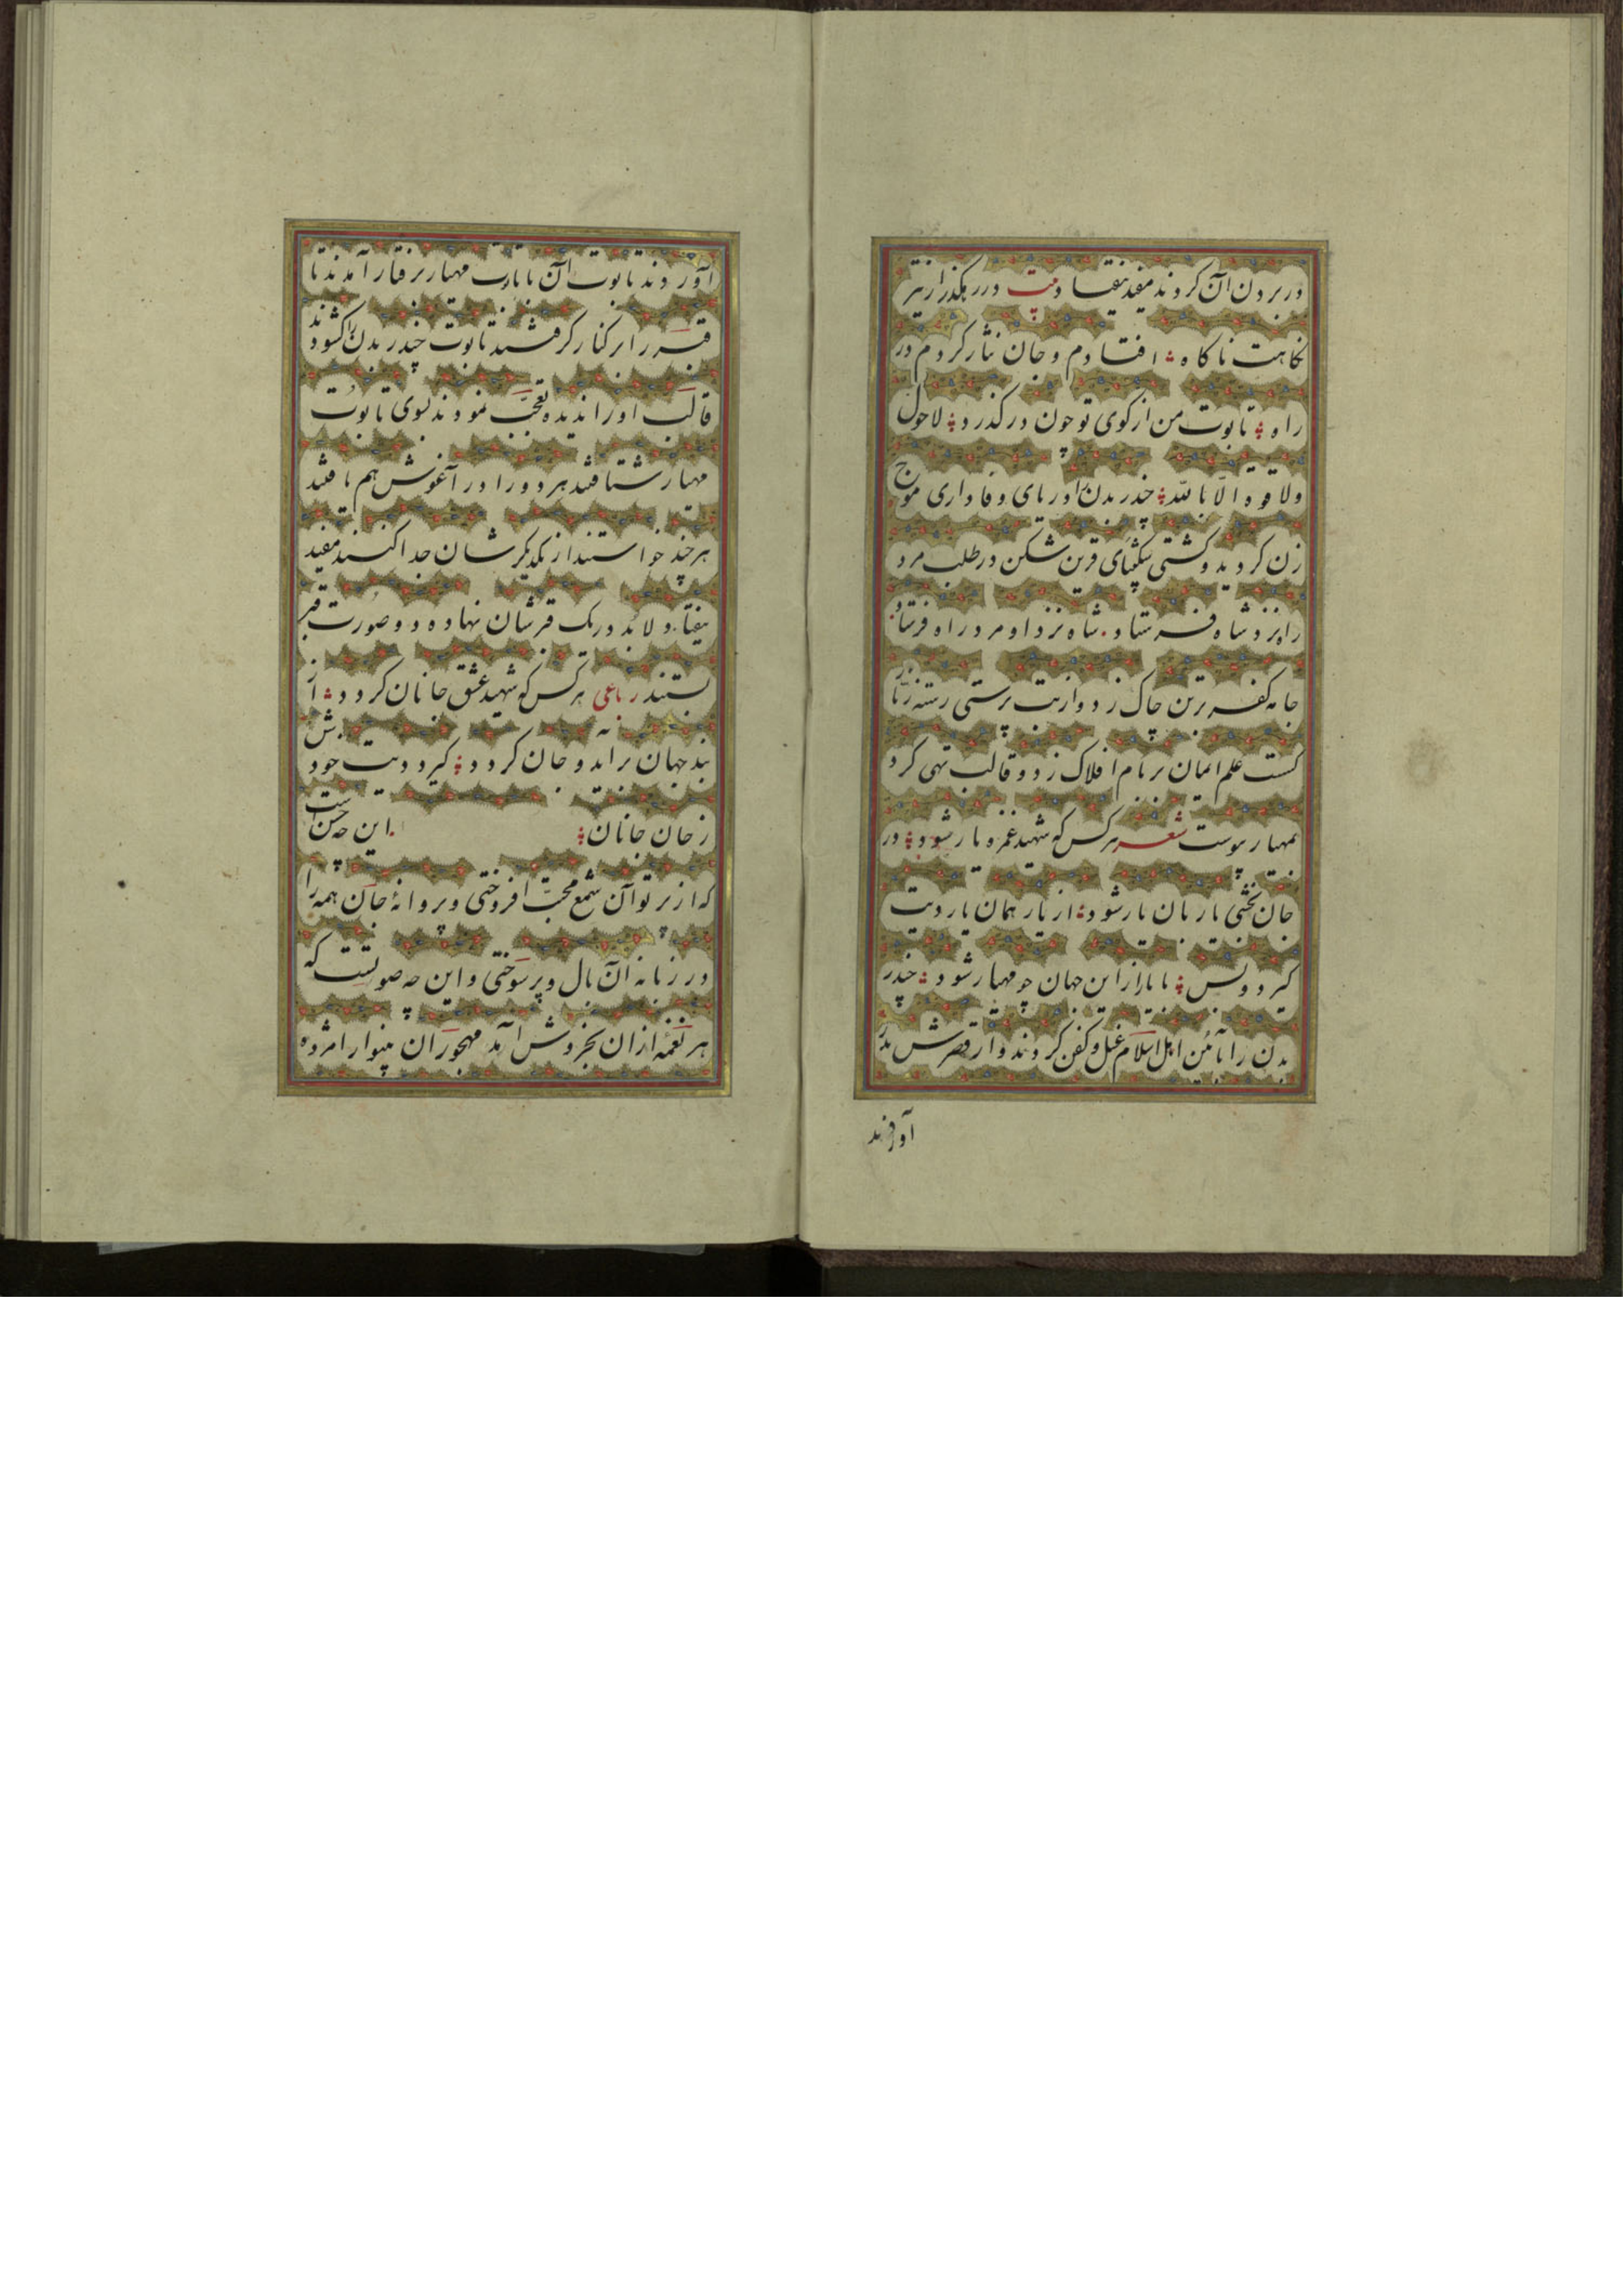 در بردن آن کردند مفید نیفتاد بیت در رهگذر از تیر
نگاهت ناگاه افتادم و جان نثار کردم در
راه تابوت من از کوی تو چون درگذرد لاحول
ولا قوة الا بالله چندر بدن را دریای وفاداری موج
زن گردید و کشتی شکیبای قرین شکن در طلب مرد
را نزد شاه فرستاد شاه نزد او مرد راه فرستاد
جامه کفر برتن چاک زد و از بت پرستی رسته زنار
گسست علم ایمان بر بام افلاک زد و قالب تهی کرد
بمهیار پیوست شعر هر کس که شهید غمزه یار شود در
جان بخشی یار بان یار شود از یار همان یار دیت
گیرد و بس با یار از این جهان چو مهیار شود چندر
بدن را بآئین اهل اسلام غسل و کفن کردند و از قصرش بدر
آوردند
آوردند تابوت آن با تابوت مهیار برفتار آمدند تا
قبر را بر کنار گرفتند تابوت چندر بدن را گشودند
قالب او را ندیده تعجب نمودند بسوی تابوت
مهیار شتافتند هر دو را در آغوش هم یافتند
هر چند خواستند از یکدیگر شان جدا کنند مفید
نیفتاد لابد در یک قبرشان نهاده دو صورت قبر
بستند رباعی هر کس که شهید عشق جانان گردد از
بند جهان برآید و جان گردد گیرد دیت خود
ز جان جانان این چه حسن است
که از پرتو آن شمع محبت افروختی و پروانه جان همه را
در زبانه آن بال و پر سوختی و این چه صوتیست که
هر نغمه ازان بخروش آمد مهجوران بینوا را مژده